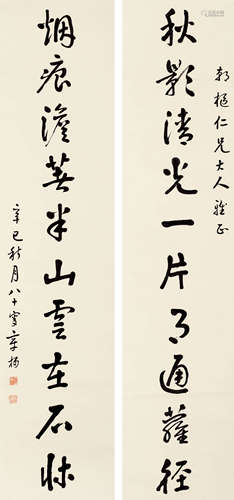 朝樞仁兄大人雅正
秋影清光一片月通蘿徑
烟痕澹半山雲在石牀
辛巳秋月八十叟章梫